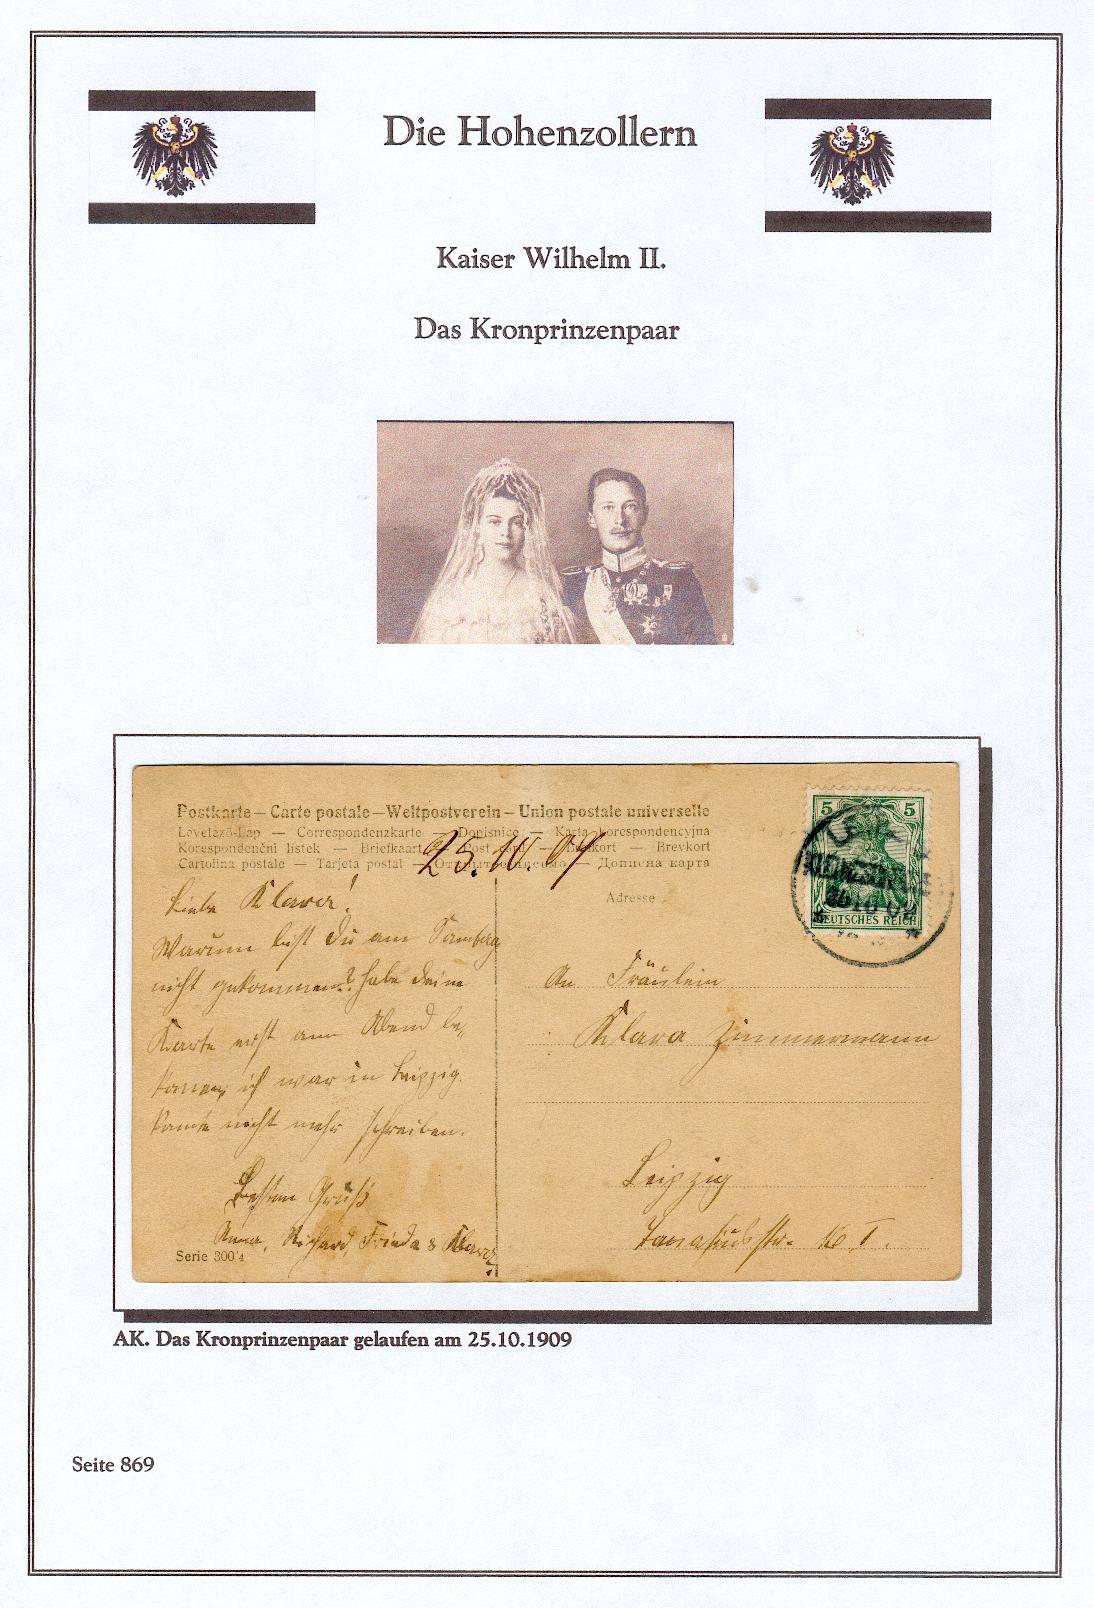 Die Hohenzollern
Kaiser Wilhelm II.
Das Kronprinzenpaar
Postkarte – Carte postale – Weltpostverein – Union postale universelle
Levelező-Lap — Correspondenzkarte — Dopisnice — Karta korespondencyjna
Korespondenční lístek — Briefkaart — Post card — Brefkort — Brevkort
Cartolina postale — Tarjeta postal — Открытое письмо — Дописна карта
25.10.09
Liebe Klara!
Warum bist Du am
nicht gekommen? habe Deine
Karte erst am Abend be-
kommen, ich war in Leipzig.
konnte nicht mehr schreiben.
Besten Gruß
Anna, Richard, Frieda &
Serie 300
Adresse
5 5
DEUTSCHES REICH
An Fräulein
Klara Zimmermann
Leipzig
AK. Das Kronprinzenpaar gelaufen am 25.10.1909
Seite 869